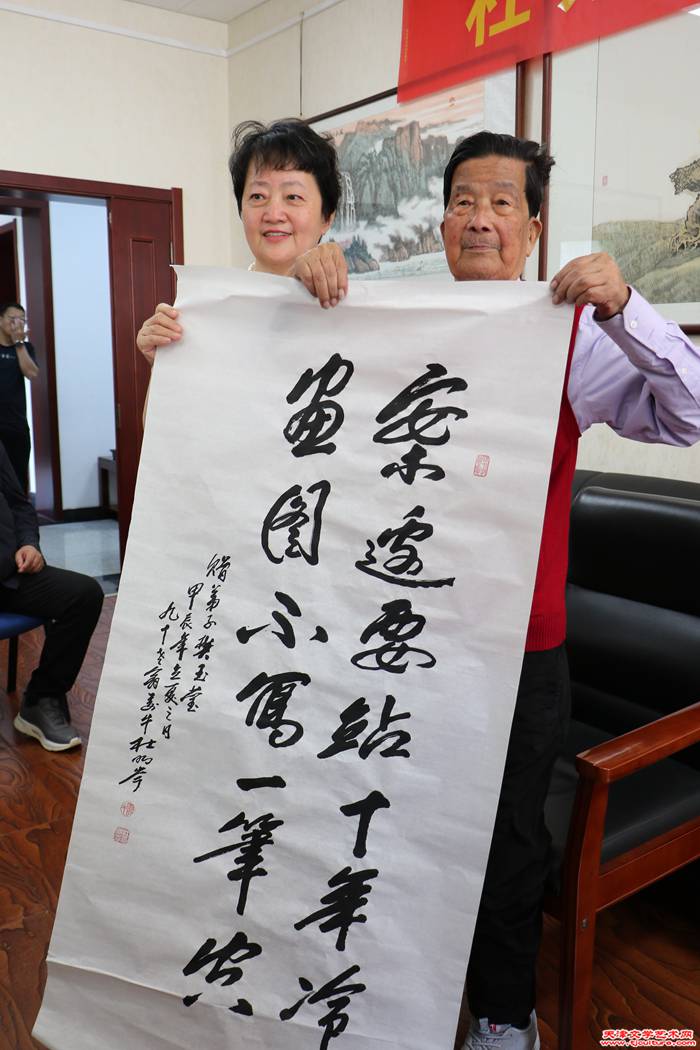 社
案邊要站十年冷
画图不寫一筆空
赠弟子樊玉莹
甲辰年立夏之日
九十老翁牛杜明岑
天津文学艺术网
www.tjculture.com